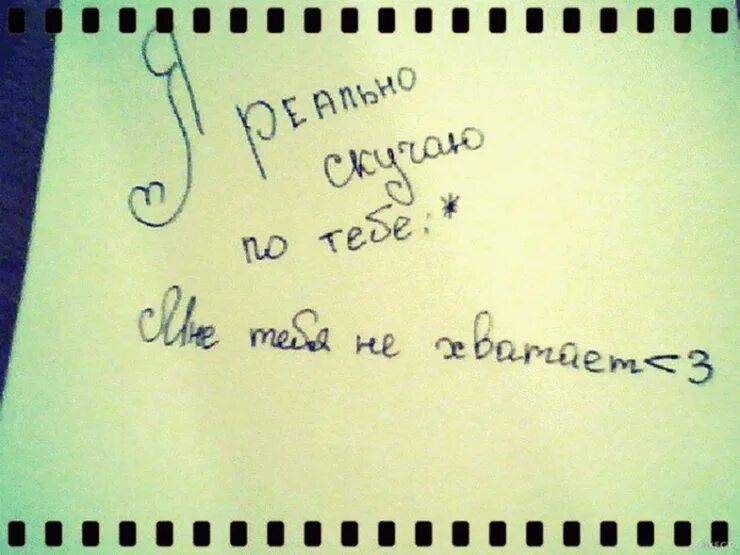 Я реально
скучаю
по тебе:*
Мне тебя не хватает<3